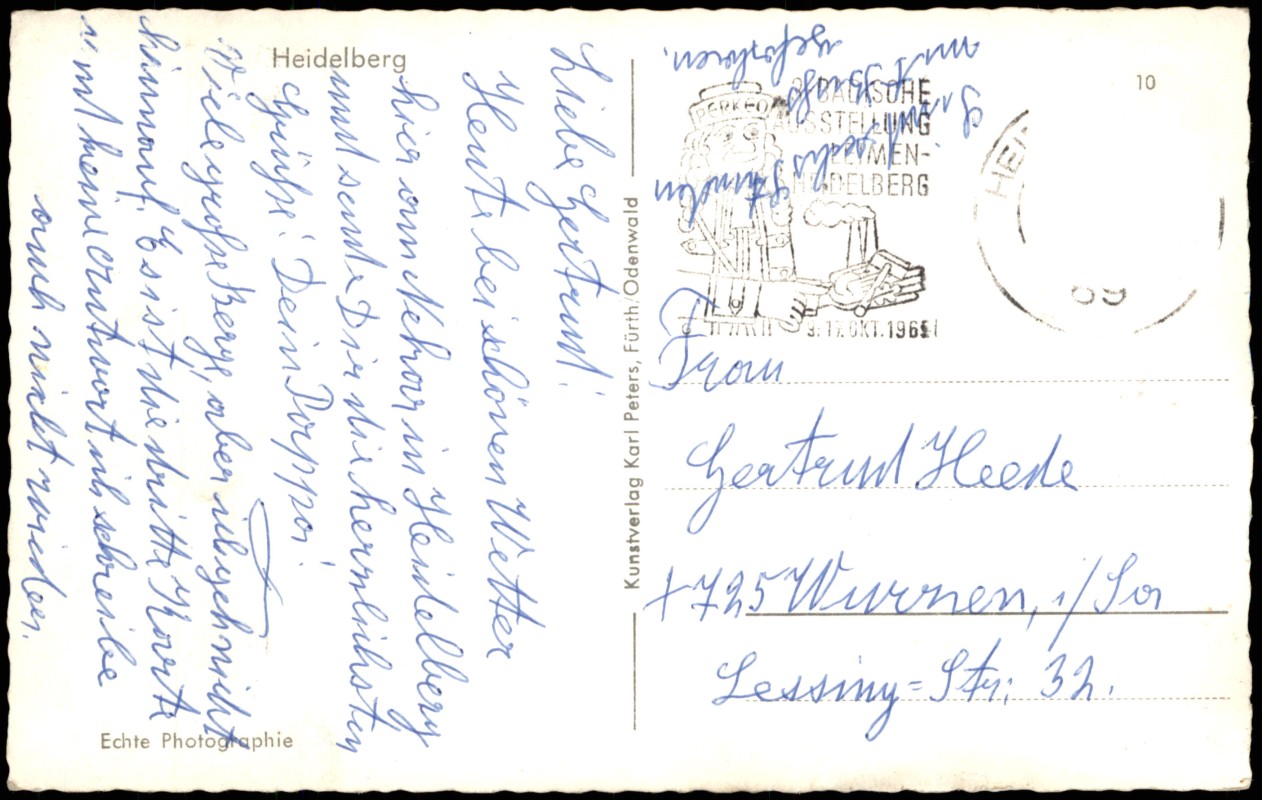 Heidelberg
Liebe Gertrud!
Heute bei schönen Wetter
hier am Neckar in Heidelberg
und sende Dir die herrlichsten
Grüße! Dein Pappa!
Viele große Berge, aber ich geh nicht
hinnauf. Es ist die dritte Karte
u. nt keine Antwort ich schreibe
auch nicht wieder.
Echte Photographie
Kunstverlag Karl Peters, Fürth/Odenwald
sechs Stunden
mit
gefahren.
10
PERKEO
BADISCHE
AUSSTELLUNG
LEIMEN-
HEIDELBERG
9.-17. OKT. 1965
HEI
69
Frau
Gertrud Heede
x 725 Wurzen, i/Sa
Lessing=Str. 32.